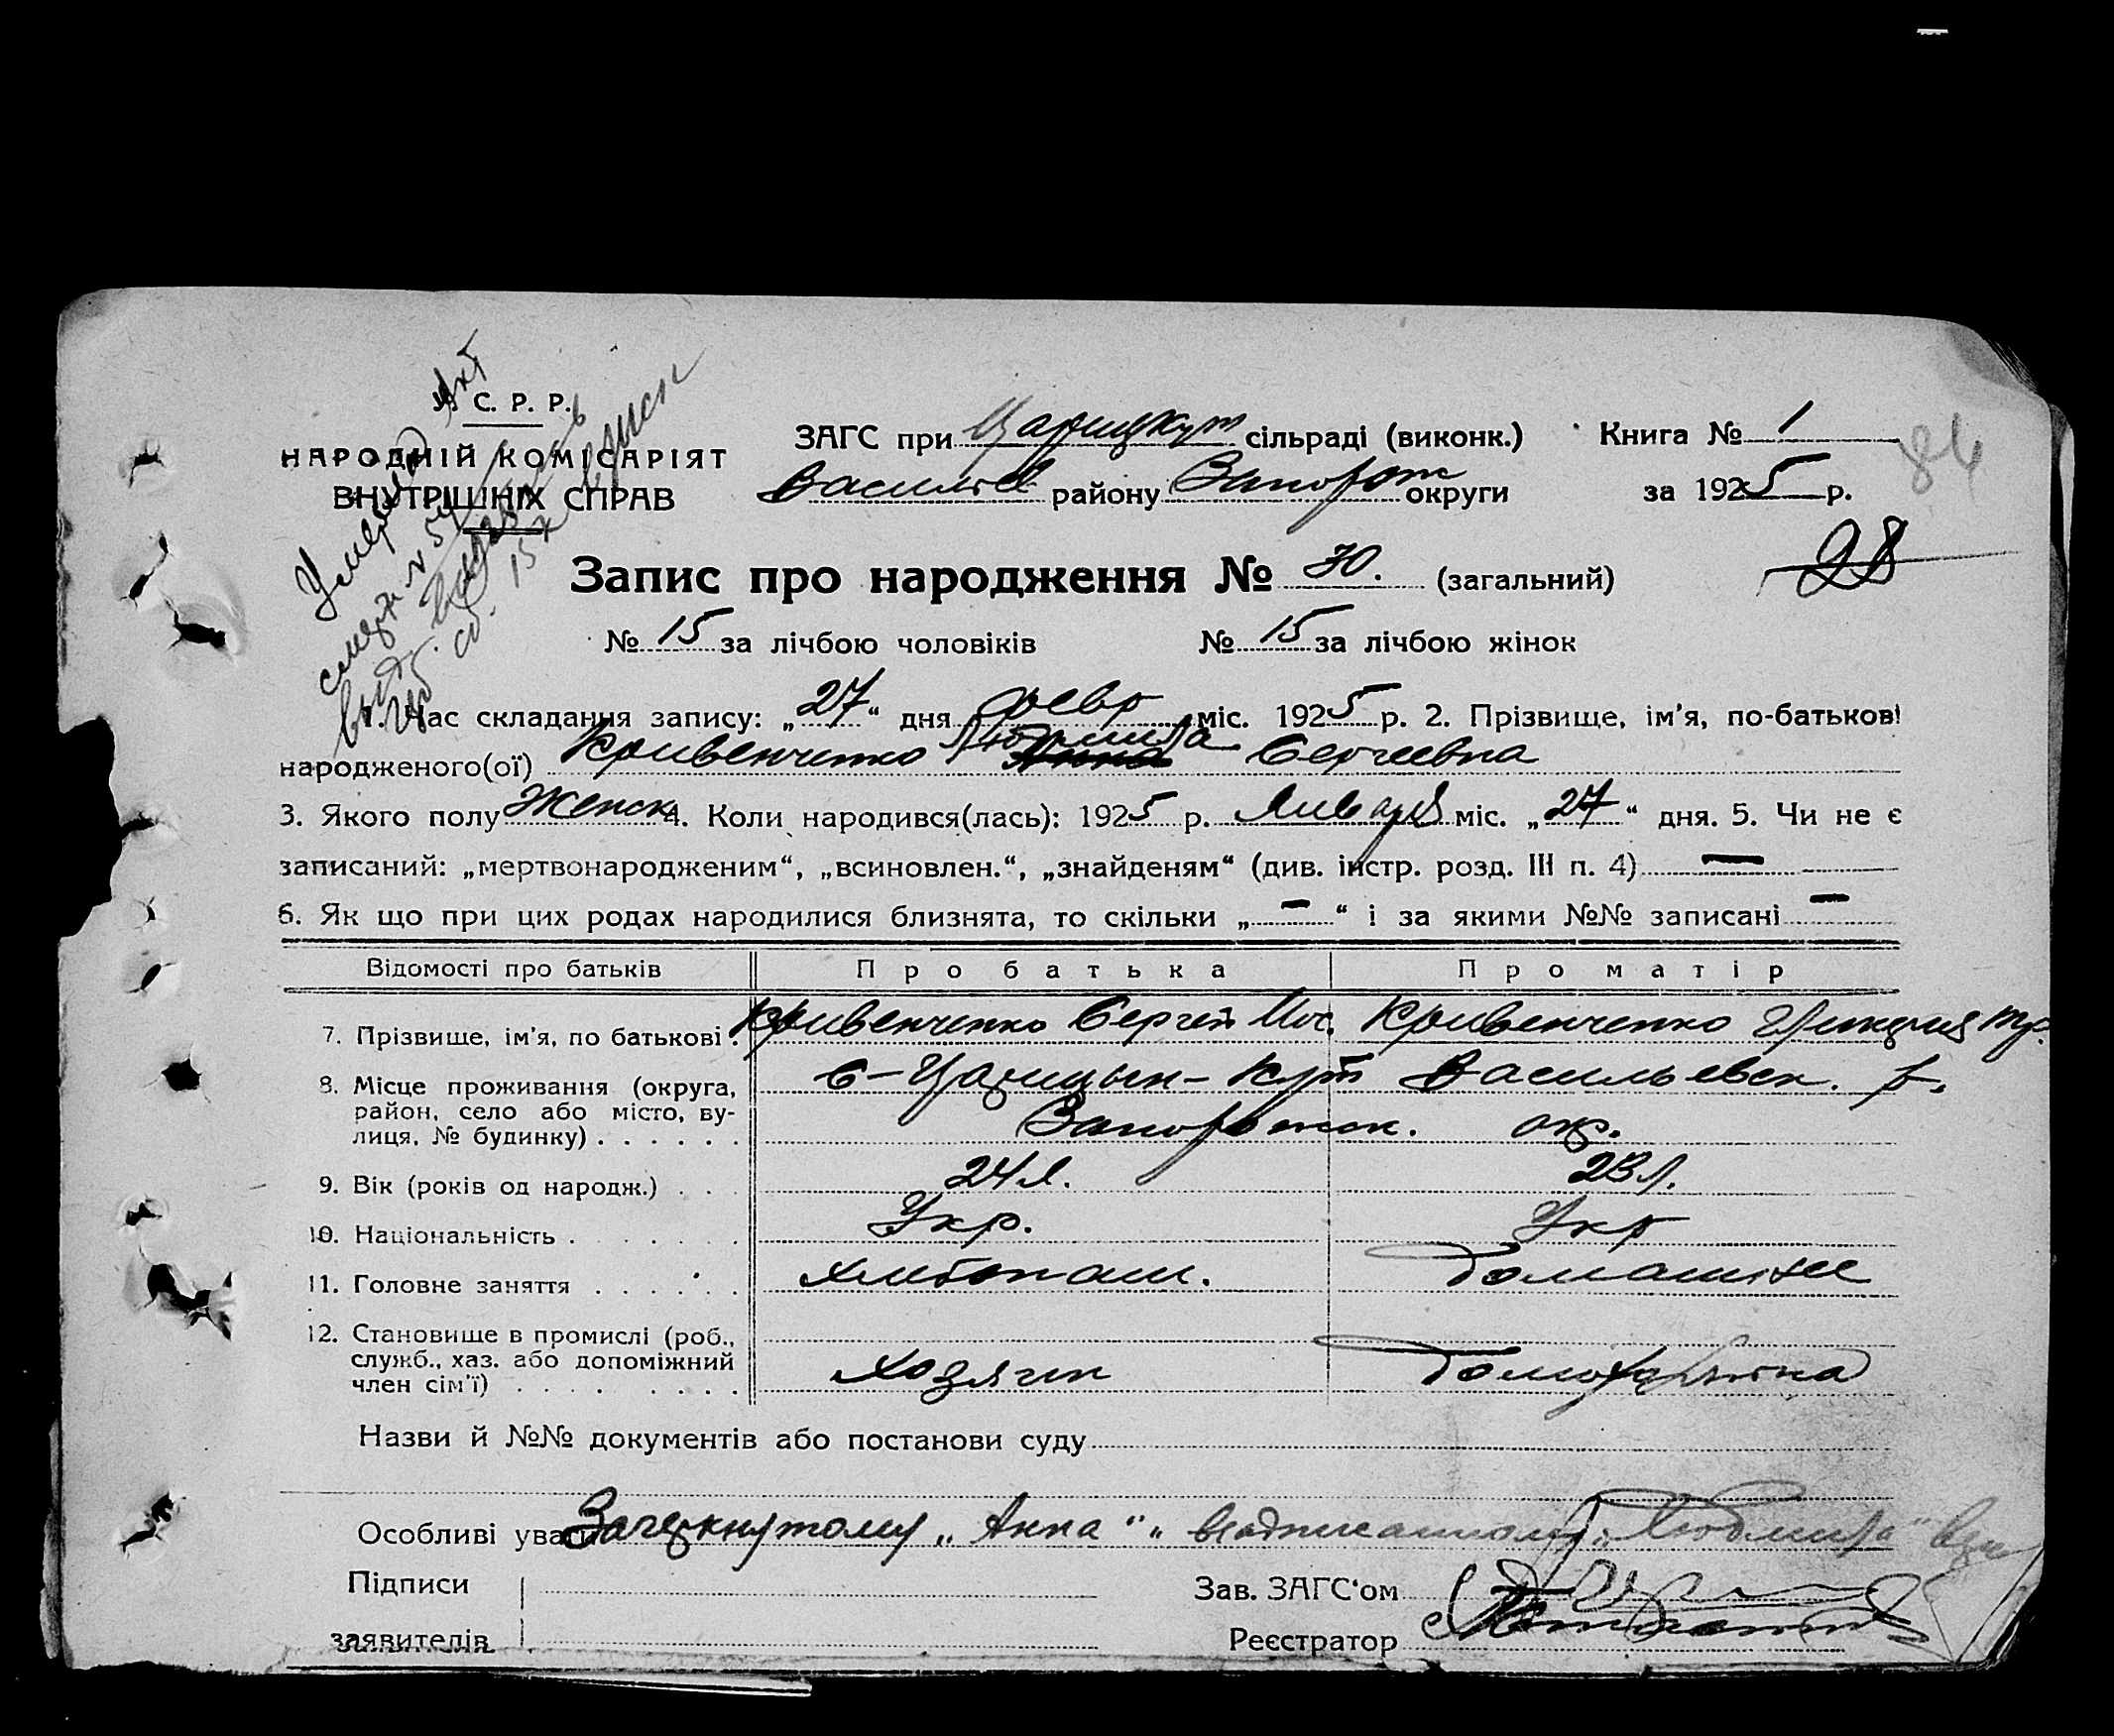 У С. Р. Р.
НАРОДНІЙ КОМІСАРІЯТ
ВНУТРІШНІХ СПРАВ
Умерла Акт
смерти N
ЗАГС при Царицкут сільраді (виконк.) Книга № 1
84
Василів району Запорож округи за 1925 р.
28
Запис про народження № 30. (загальний)
№ 15 за лічбою чоловіків № 15 за лічбою жінок
1. Час складання запису: „27“ дня февр міс. 1925 р. 2. Прізвище, ім'я, по-батькові
Людмила
народженого(ої) Кривенченко Анна Сергеевна
3. Якого полу Женск 4. Коли народився(лась): 1925 р. Января міс. „27“ дня. 5. Чи не є
записаний: „мертвонародженим“, „всиновлен.“, „знайденям“ (див. інстр. розд. III п. 4) —
6. Як що при цих родах народилися близнята, то скільки „—“ і за якими №№ записані —
Відомості про батьків Про батька Про матір
7. Прізвище, ім'я, по батькові . Кривенченко Сергей Кривенченко
8. Місце проживання (округа, район, село або місто, вулиця, № будинку) . . . . . . С-Царицын-Кут Васильевск. р.
Запорожск. окр.
9. Вік (років од народж.) . . . 24 л. 23 л.
10. Національність . . . . . . . Укр. Укр
11. Головне заняття . . . . . . Хлебопаш. Домашнее
12. Становище в промислі (роб.,
служб., хаз. або допоміжний
член сім'ї) . . . . . . . . Хозяин Домохозяйка
Назви й №№ документів або постанови суду
Особливі уваги Зачеркнутому „Анна“ „ надписанному „Людмила“
Підписи Зав. ЗАГС'ом
заявителів Реєстратор